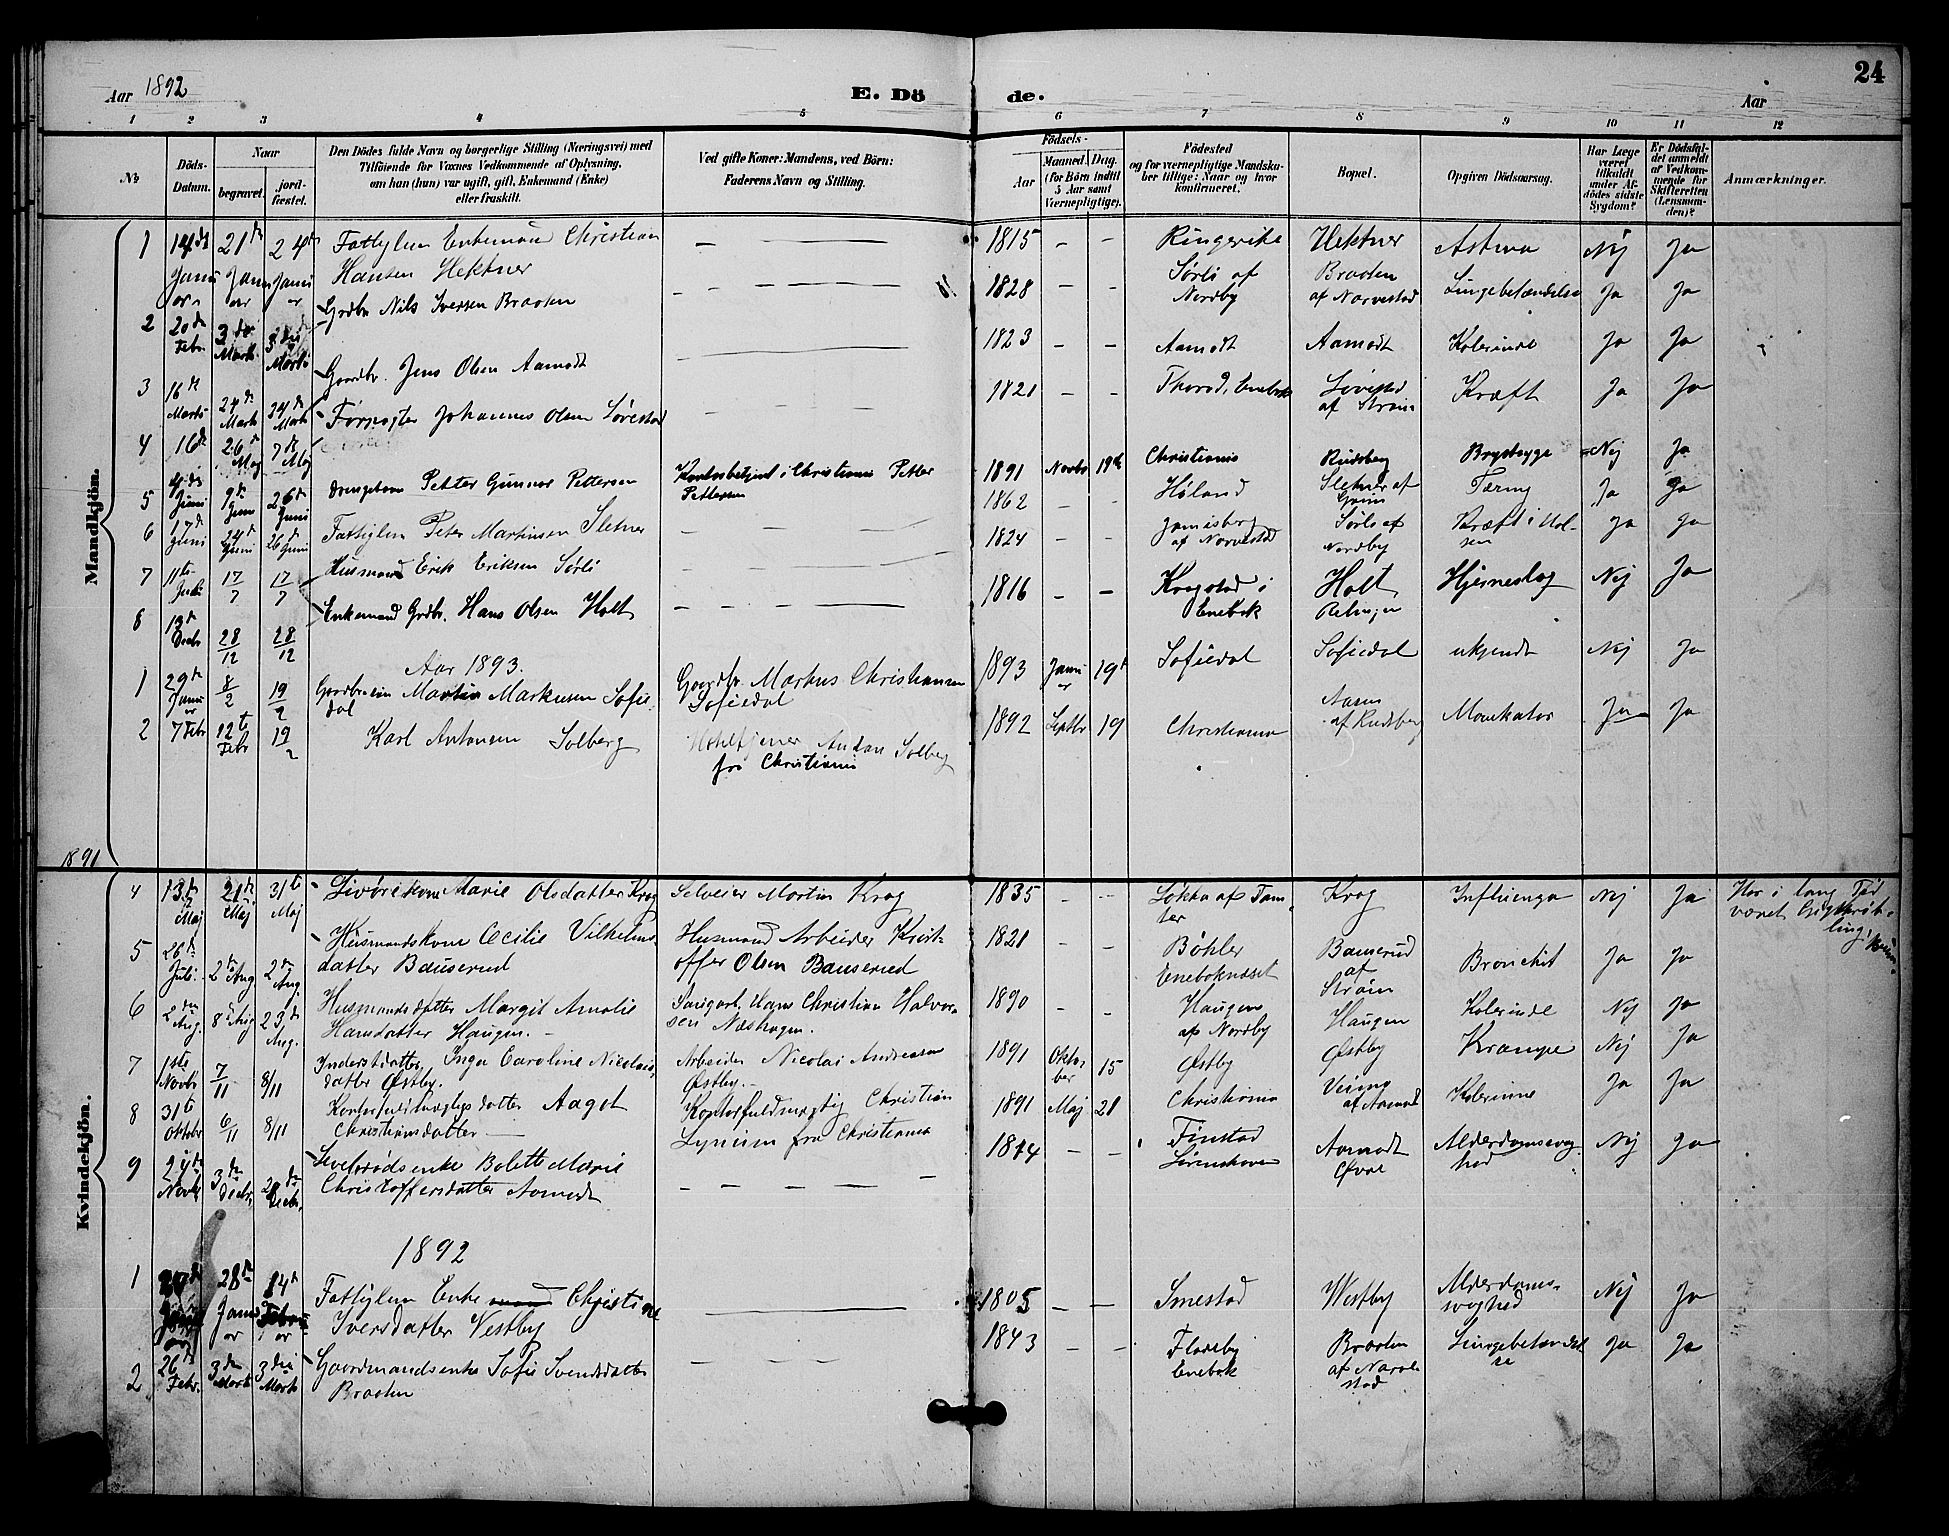 Aar 1892
E. Döde.
Aar
24
1 2 3 4 5 6 7 8 9 10 11 12
No
Döds-Datum.
Naar
begravet.
jord-fæstet.
Den Dödes fulde Navn og borgerlige Stilling (Næringsvei) med
Tilföiende for Voxnes Vedkommende af Oplysning,
om han (hun) var ugift, gift, Enkemand (Enke)
eller fraskilt.
Ved gifte Koner: Mandens, ved Börn:
Faderens Navn og Stilling.
Födsels-
Aar
Maaned. Dag.
(for Börn indtil
5 Aar samt
Værnepligtige).
Födested
og for værnepligtige Mandska-
ber tillige: Naar og hvor
konfirmeret.
Bopæl.
Opgiven Dödsaarsag.
Har Læge
været
tilkaldt
under Af-
dödes sidste
Sygdom?
Er Dödsfal-
det anmeldt
af Vedkom-
mende for
Skifteretten
(Lensman-
den)?
Anmærkninger.
Mandkjön.
1 14de Januar 21de Januar 24de Januar Fattiglem Enkemand Christian Hansen Hektner — — — 1815 — — Ringerike Hektner Astma Nej Ja
2 20de Febr. 3die Marts 3die Marts Grdbr. Nils Iversen Braaten — — — 1828 — — Sørli af Nordby Braaten af Narvestad Lungebetændelse Ja Ja
3 16de Marts 24de Marts 24de Marts Gaardbr. Jens Olsen Aamodt 1823 — — Aamodt Aamodt Kolerine Ja Ja
4 16de 26de Maj 7de Maj Forpagter Johannes Olsen Løvestad — — — 1821 — — Enebak Løvestad af Strøm Kræft Ja Ja
5 4de Juni 9de Juni 26de Juni Drengebarn Petter Gunnar Pettersen Kontorbetjent i Christiania Petter Pettersen 1891 Novbr 19de Christiania Rudsberg Brystsyge Nej Ja
6 17de Juni 24de Juni 26de Juni Fattiglem Peter Martinsen Sletner — — — 1862 — — Høland Sletner af Tæring Ja Ja
7 11te Juli 17/7 17/7 Husmand Erik Eriksen Sørli — — — 1824 — — af Narvestad Sørli af Nordby Kræft i Halsen Ja Ja
8 13de Decbr 28/12 28/12 Enkemand Grdbr. Hans Olsen Holt — — — 1816 — — Kragstad i Enebak Holt Hjerneslag Nej Ja
Aar 1893.
1 29de Januar 8/2 19/2 Gaardbr.søn Martin Markusen Sofiedal Gaardbr. Markus Christiansen Sofiedal 1893 Januar 19de Sofiedal Sofiedal ukjendt Nej Ja
2 7 Febr 12te Febr 19/2 Karl Antonsen Solberg Anton Solberg fra Christiania 1892 Septbr 19 Christiania af Rudsberg Ja Ja
1891
Kvindekjön.
4 13de Maj 21de Maj 31te Maj Marie Olsdatter Krog Selveier Martin Krog 1835 — — Krog Influenza Nej Ja Har i lang Tid været
5 28de Juli 2den Aug 2den Aug. Husmandskone Cecilie Vilhelmsdatter Bauserud Husmand Arbeider Kristoffer Olsen Bauserud 1821 — — Bøhler Enebaknæsset Bauserud af Strøm Bronchit Ja Ja
6 2den Aug. 8de Aug 23de Aug. Husmandsdatter Margit Amalie Hansdatter Haugen. — Hans Christian Halvorsen Næshagen. 1890 — — Haugen af Nordby Haugen Kolerine Nej Ja
7 1ste Novbr 7/11 8/11 Inderstdatter Inga Caroline Nicolaisdatter Østby. Arbeider Nicolai Andersen Østby. — 1891 Oktober 15 Østby Østby Krampe Nej Ja
8 31te Oktbr 6/11 8/11 Kontorfuldmægtigs datter Aagot Christiansdatter — Kontorfuldmægtig Christian fra Christiania 1891 Maj 21 Christiania af Aamodt Kolerine Ja Ja
9 24de Novbr 3die Decbr. Decbr. Levebrødsenke Bolette Marie Christoffersdatter Aamodt — — — — 1814 — — Finstad Lørenskoven Aamodt Øvre Alderdomssvaghed Nej Ja
1892
1 Januar 28de Januar 14de Februar Fattiglem Enke Christine Iversdatter Vestby — — — 1805 — — Smestad Westby Alderdomssvaghed Nej Ja
2 26de Febr. 3die Marts 3die Marts Gaardmandsenke Sofie Svendsdatter Braaten — — — 1843 — — Flateby Enebak Braaten af Narvestad Lungebetændelse Ja Ja